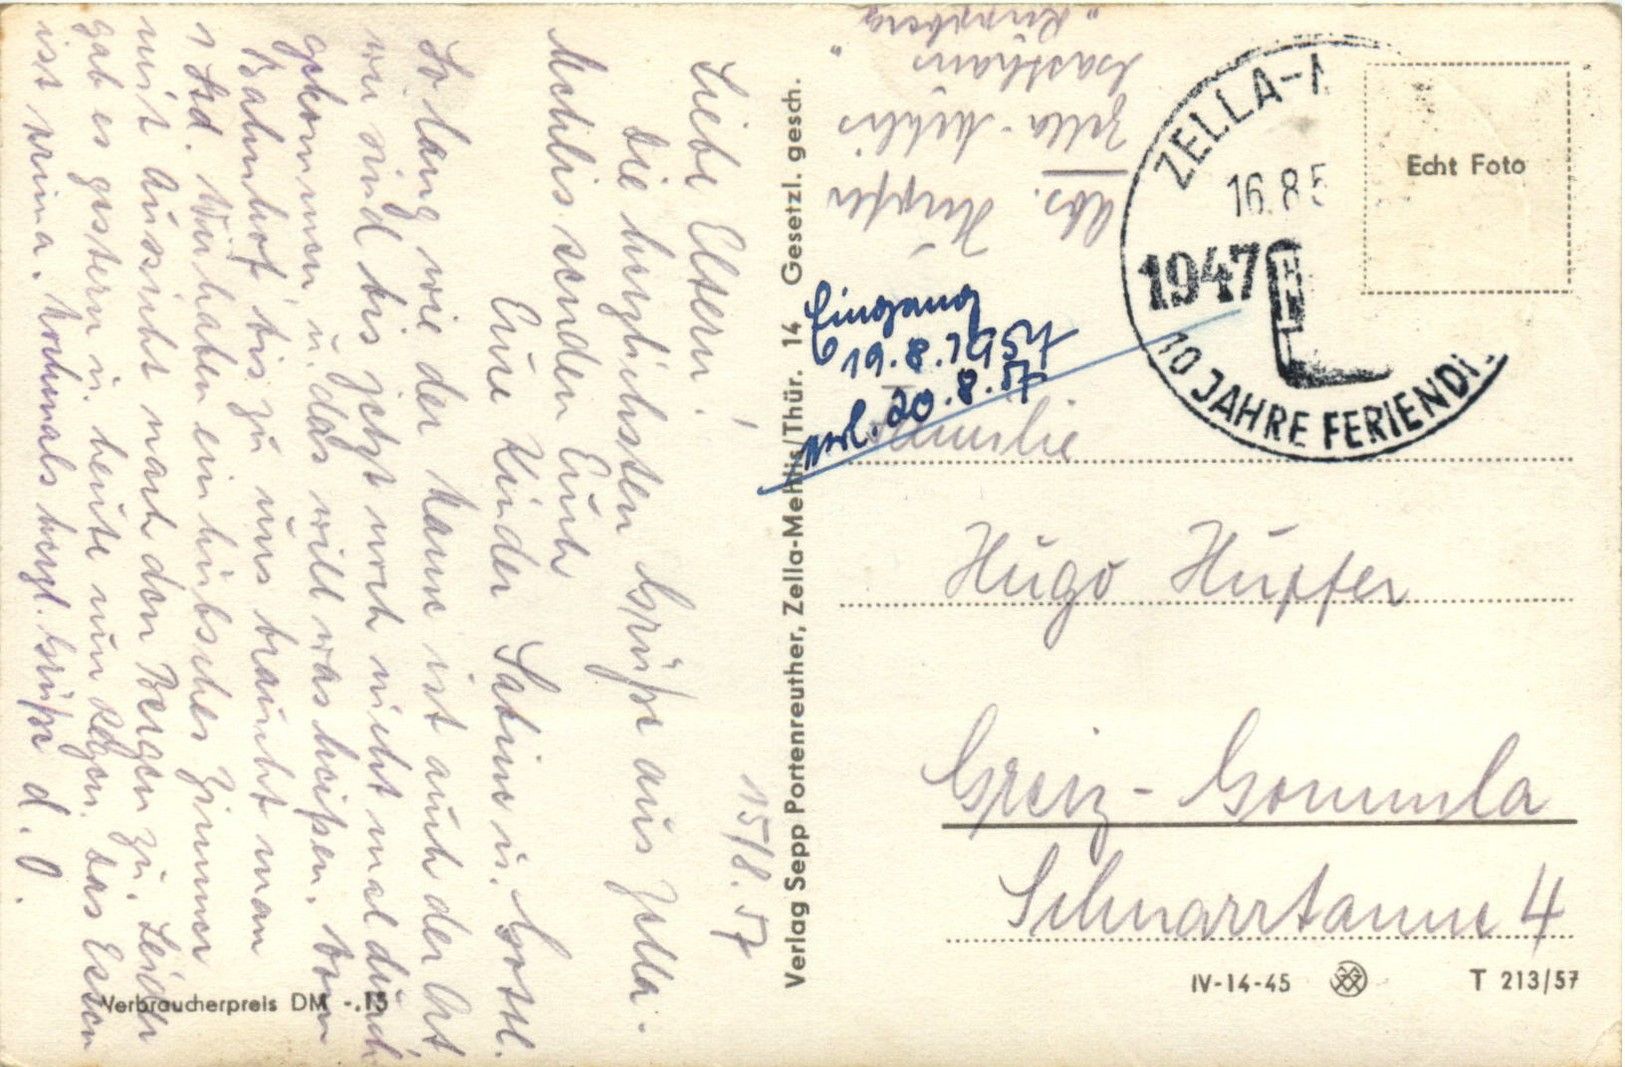 15/8. 57
Liebe Eltern!
Die herzlichsten Grüße aus Zella-
Mehlis senden Euch
Eure Kinder Sabine u. Gottl.
So lang wie der Name ist auch der Ort
wir sind bis jetzt noch nicht mal durch
gekommen u. das will was heißen. Vom
Bahnhof bis zu uns braucht man
1 Std. Wir haben ein hübsches Zimmer
mit Aussicht nach den Bergen zu. Leider
gab es gestern u. heute nur Regen. Das Essen
ist prima. Nochmals herzl. Grüße d. O.
Verbraucherpreis DM -.15
Verlag Sepp Portenreuther, Zella-Mehlis/Thür. 14 Gesetzl. gesch.
Abs. Hupfer
Zella-Mehlis
Gasthaus
"Ruppberg"
Eingang
19.8.1957
erl. 20.8.57
ZELLA-M
16.8.5
1947
10 JAHRE FERIENDI
Echt Foto
Familie
Hugo Hupfer
Greiz-Gommla
Schnarrtanne 4
IV-14-45
T 213/57